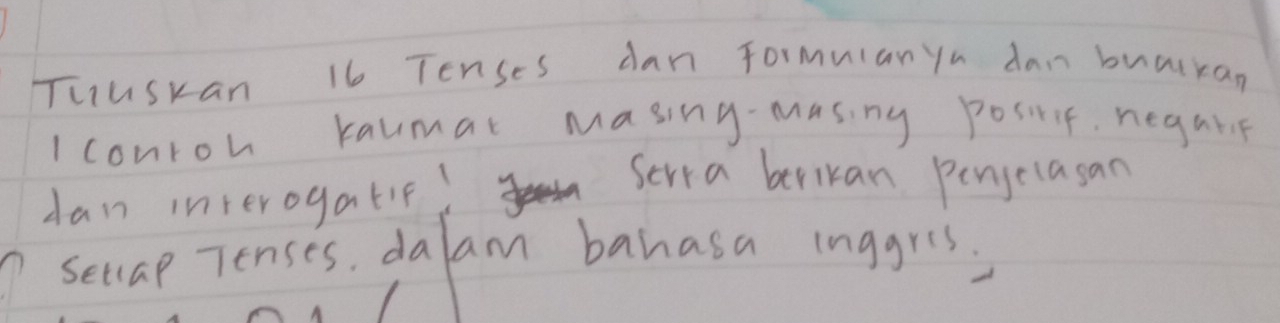 Tuliskan 16 Tenses dan Formulanya dan buatkan
1 contoh kalimat masing-masing positif, negatif
dan interogatif! Serta berikan penjelasan
setiap Tenses. dalam bahasa inggris.